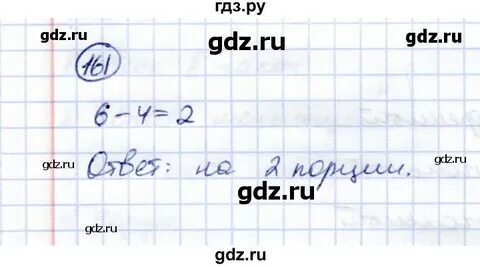 гдз.ру
gdz.ru
gdz.ru
161
gdz.ru
6-4=2
gdz.ru
Ответ: на 2 порции.
gdz.ru
gdz.ru
gdz.ru